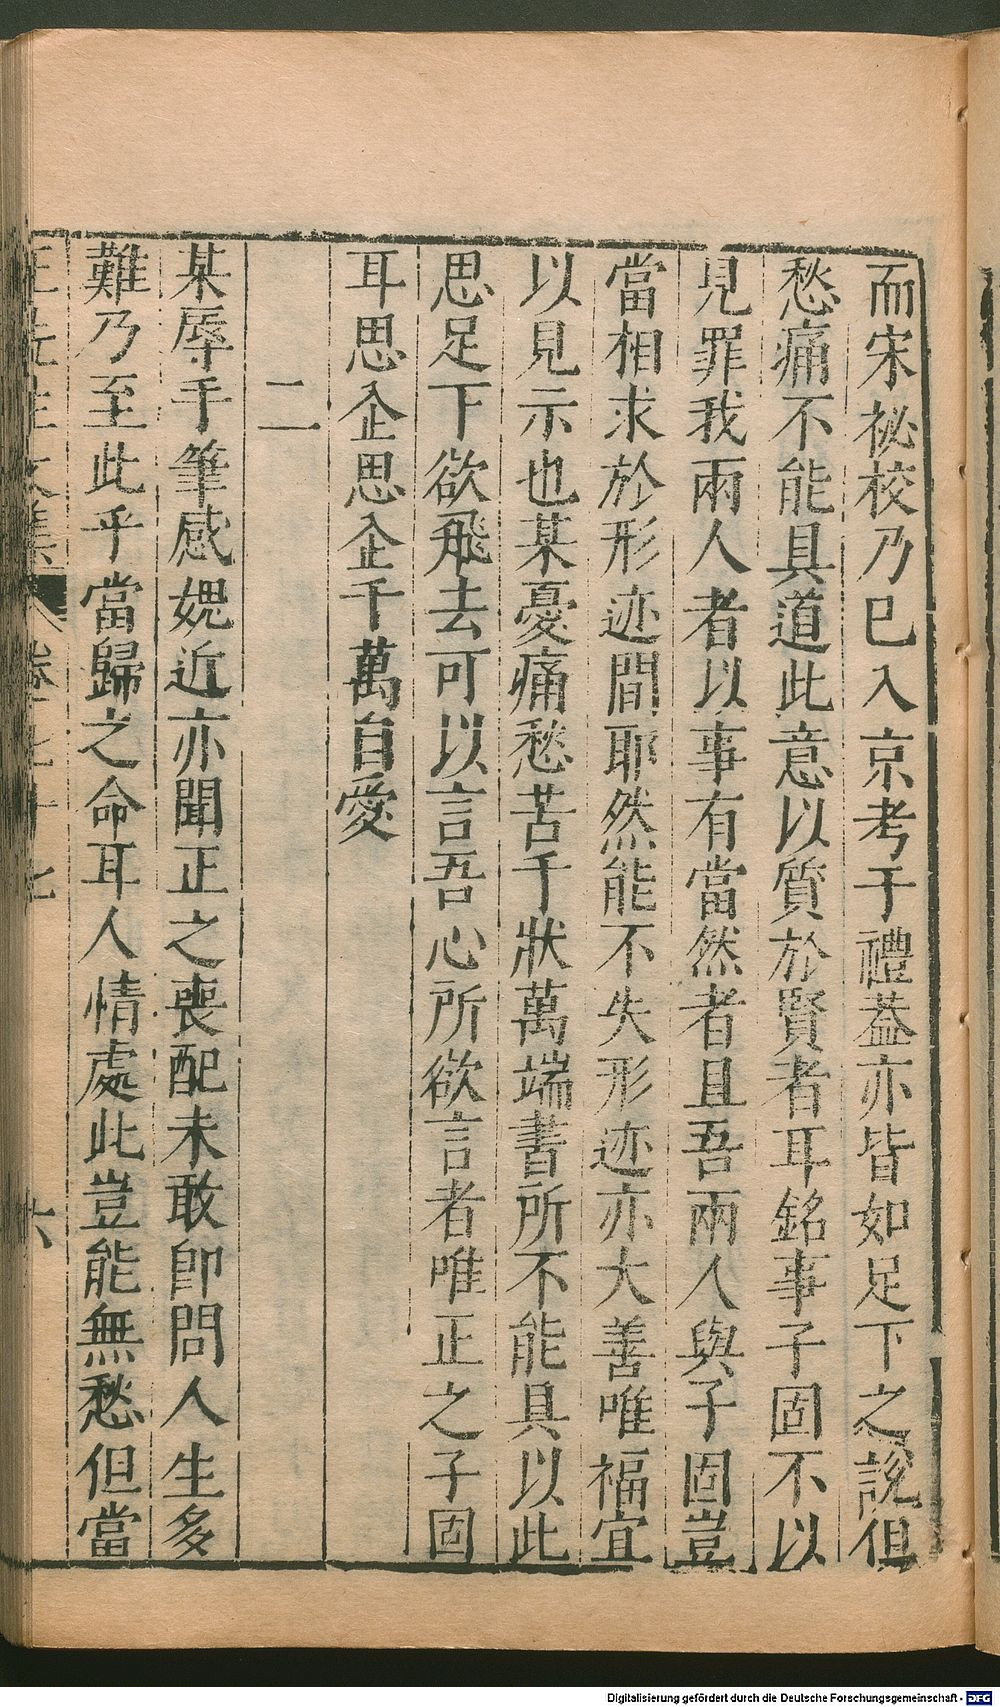 而宋祕校乃已入京考于禮葢亦皆如足下之說但
愁痛不能具道此意以質於賢者耳銘事子固不以
見罪我兩人者以事有當然者且吾兩人與子固豈
當相求於形迹間耶然能不失形迹亦大善唯福宜
以見示也某憂痛愁苦千狀萬端書所不能具以此
思足下欲飛去可以言吾心所欲言者唯正之子固
耳思企思企千萬自愛
二
某辱手筆感媿近亦聞正之喪配未敢卽問人生多
難乃至此乎當歸之命耳人情處此豈能無愁但當
王先生文集 卷七十七 六
Digitalisierung gefördert durch die Deutsche Forschungsgemeinschaft - DFG